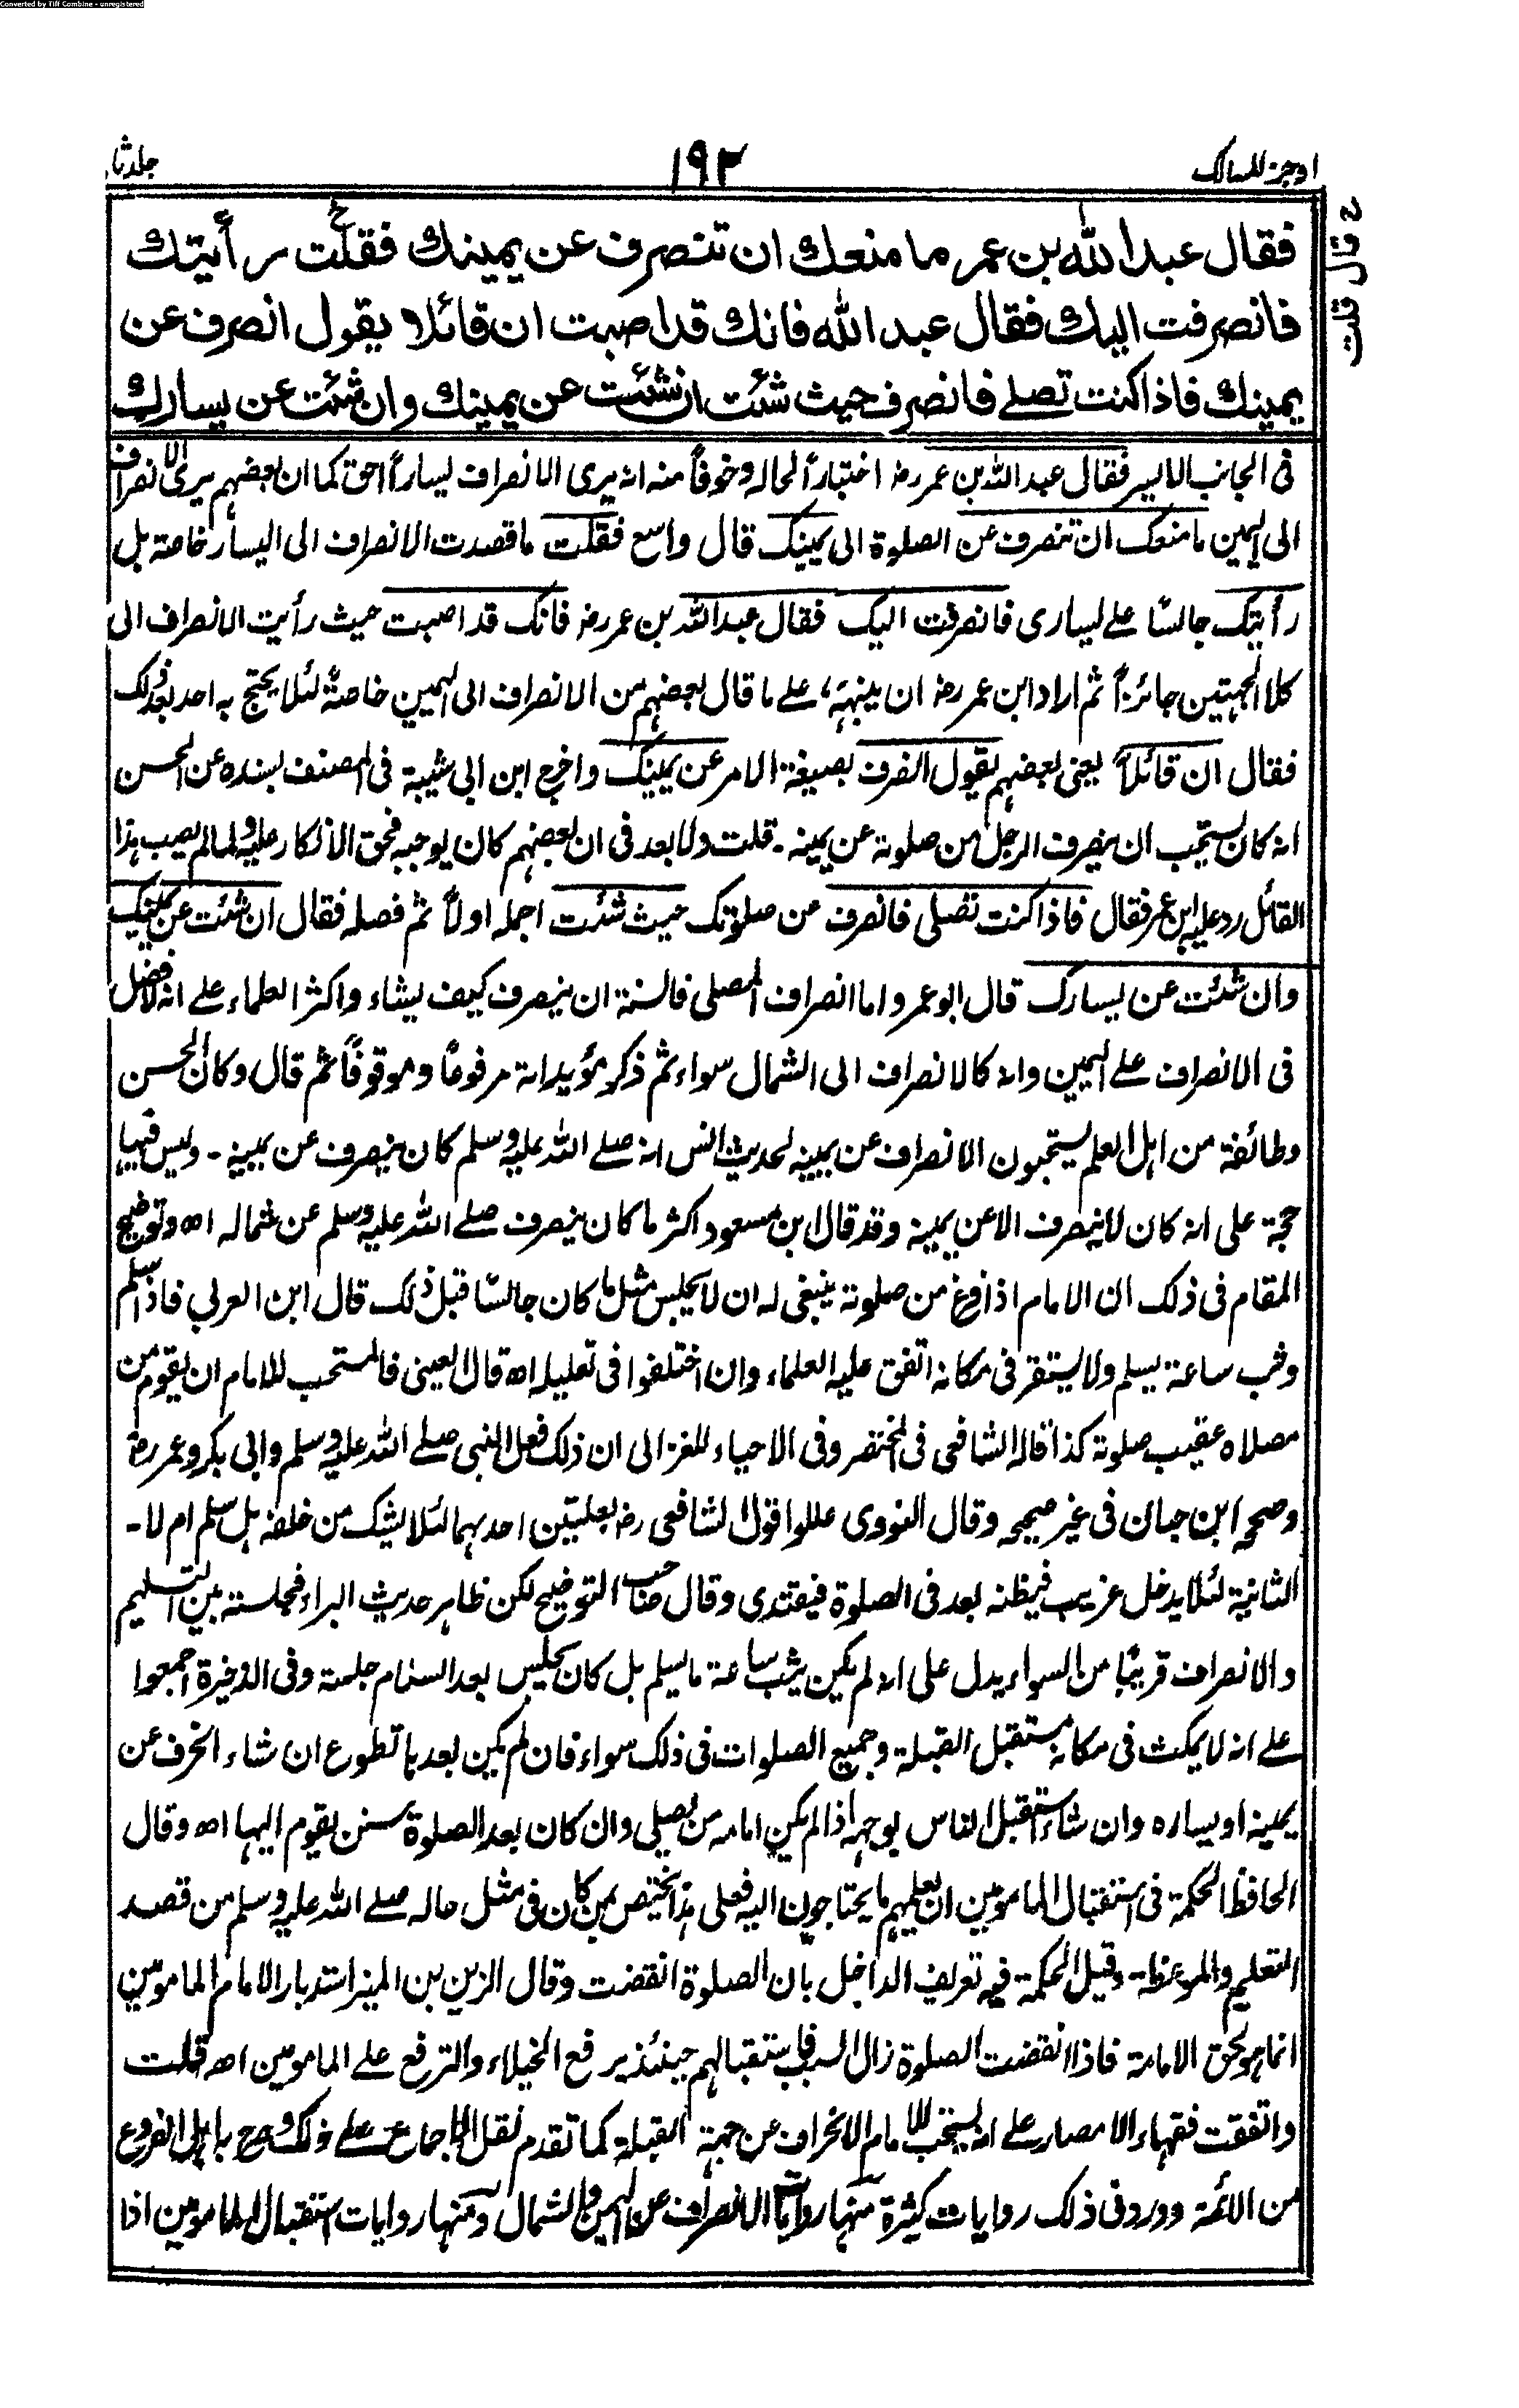 Converted by Tiff Combine - unregistered
اوجز المسالك
١٩٢
جلد ثا
فقال عبد الله بن عمر ما منعك ان تنصرف عن يمينك فقلت رأيتك
خ قال قلت
فانصرفت اليك فقال عبد الله فانك قد اصبت ان قائلا يقول انصرف عن
يمينك فاذا كنت تصلے فانصرف حيث شئت ان شئت عن يمينك وان شئت عن يسارك
فى الجانب الايسر فقال عبد الله بن عمر رضـ اختباراً لحاله وخوفاً منه انه يرى الانصراف يساراً احق كما ان بعضهم يرى الانصراف
الى اليمين ما منعك ان تنصرف عن الصلوة الى يمينك قال واسع فقلت ما قصدت الانصراف الى اليسار خاصة بل
رأيتك جالسًا علے يسارى فانصرفت اليك فقال عبد الله بن عمر رضـ فانك قد اصبت حيث رأيت الانصراف الى
كلا الجهتين جائزاً ثم اراد ابن عمر رضـ ان ينبهه علے ما قال بعضهم من الانصراف الى اليمين خاصةً لئلا يحتج به احد بعد ذلك
فقال ان قائلاً يعنى بعضهم يقول انصرف بصيغة الامر عن يمينك واخرج ابن ابى شيبة فى المصنف بسنده عن الحسن
انه كان يستحب ان ينصرف الرجل من صلوته عن يمينه ۔ قلت ولا بعد فى ان بعضهم كان يوجبه فحق الانكار عليه ولما لم يصب هذا
القائل رد عليه ابن عمر فقال فاذا كنت تصلى فانصرف من صلوتك حيث شئت اجمله اولاً ثم فصله فقال ان شئت عن يمينك
وان شئت عن يسارك قال ابو عمر واما انصراف المصلى فالسنة ان ينصرف كيف يشاء واكثر العلماء علے انه لا فضل
فى الانصراف علے اليمين وانه كالانصراف الى الشمال سواء ثم ذكر مؤيداته مرفوعًا وموقوفاً ثم قال وكان الحسن
وطائفة من اهل العلم يستحبون الانصراف عن يمينه لحديث انس انه صلے الله عليه وسلم كان ينصرف عن يمينه ۔ وليس فيها
حجة على انه كان لا ينصرف الا عن يمينه وقد قال ابن مسعود اكثر ما كان ينصرف صلے الله عليه وسلم عن شماله اه وتوضيح
المقام فى ذلك ان الامام اذا فرغ من صلوته ينبغى له ان لا يجلس مثل ما كان جالسًا قبل ذلك قال ابن العربى فاذا سلم
وثب ساعة يسلم ولا يستقر فى مكانه اتفق عليه العلماء وان اختلفوا فى تعليله اه قال العينى فالمستحب للامام ان يقوم من
مصلاه عقيب صلوته كذا قاله الشافعى فى المختصر وفى الاحياء للغزالى ان ذلك فعل النبى صلے الله عليه وسلم وابى بكر وعمر رضـ
وصححه ابن حبان فى غير صحيحه وقال النووى عللوا قول الشافعى رضـ بعلتين احدهما لئلا يشك من خلفه هل سلم ام لا ۔
الثانية لئلا يدخل غريب فيظنه بعد فى الصلوة فيقتدى وقال صاحب التوضيح لكن ظاهر حديث البراء فجلسته بين التسليم
والانصراف قريبًا من السواء يدل على انه لم يكن يثب ساعة ما يسلم بل كان يجلس بعد السلام جلسة وفى الذخيرة اجمعوا
علے انه لا يمكث فى مكانه مستقبل القبلة وجميع الصلوات فى ذلك سواء فان لم يكن بعدها تطوع ان شاء انحرف عن
يمينه او يساره وان شاء استقبل الناس بوجهه اذا لم يكن امامه من يصلى وان كان بعد الصلوة سنن يقوم اليها اه وقال
الحافظ الحكمة فى استقبال المامومين ان يعلمهم ما يحتاجون اليه فعلى هذا يختص بمن كان فى مثل حاله صلے الله عليه وسلم من قصد
التعليم والموعظة وقيل الحكمة فيه تعريف الداخل بان الصلوة انقضت وقال الزين بن المنير استدبار الامام المامومين
انما هو لحق الامامة فاذا انقضت الصلوة زال السبب فاستقبالهم حينئذ يرفع الخيلاء والترفع علے المامومين اه قلت
واتفقت فقهاء الامصار علے انه يستحب للامام الانحراف عن جهة القبلة كما تقدم نقل الاجماع علے ذلك وصرح به اهل الفروع
من الائمة وورد فى ذلك روايات كثيرة منها روايات الانصراف عن اليمين والشمال ومنها روايات استقبال المامومين اذا